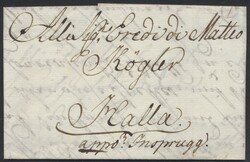 Alli Sig.ri Eredi di Matteo
Kögler
Halla
appo. Insprugg.